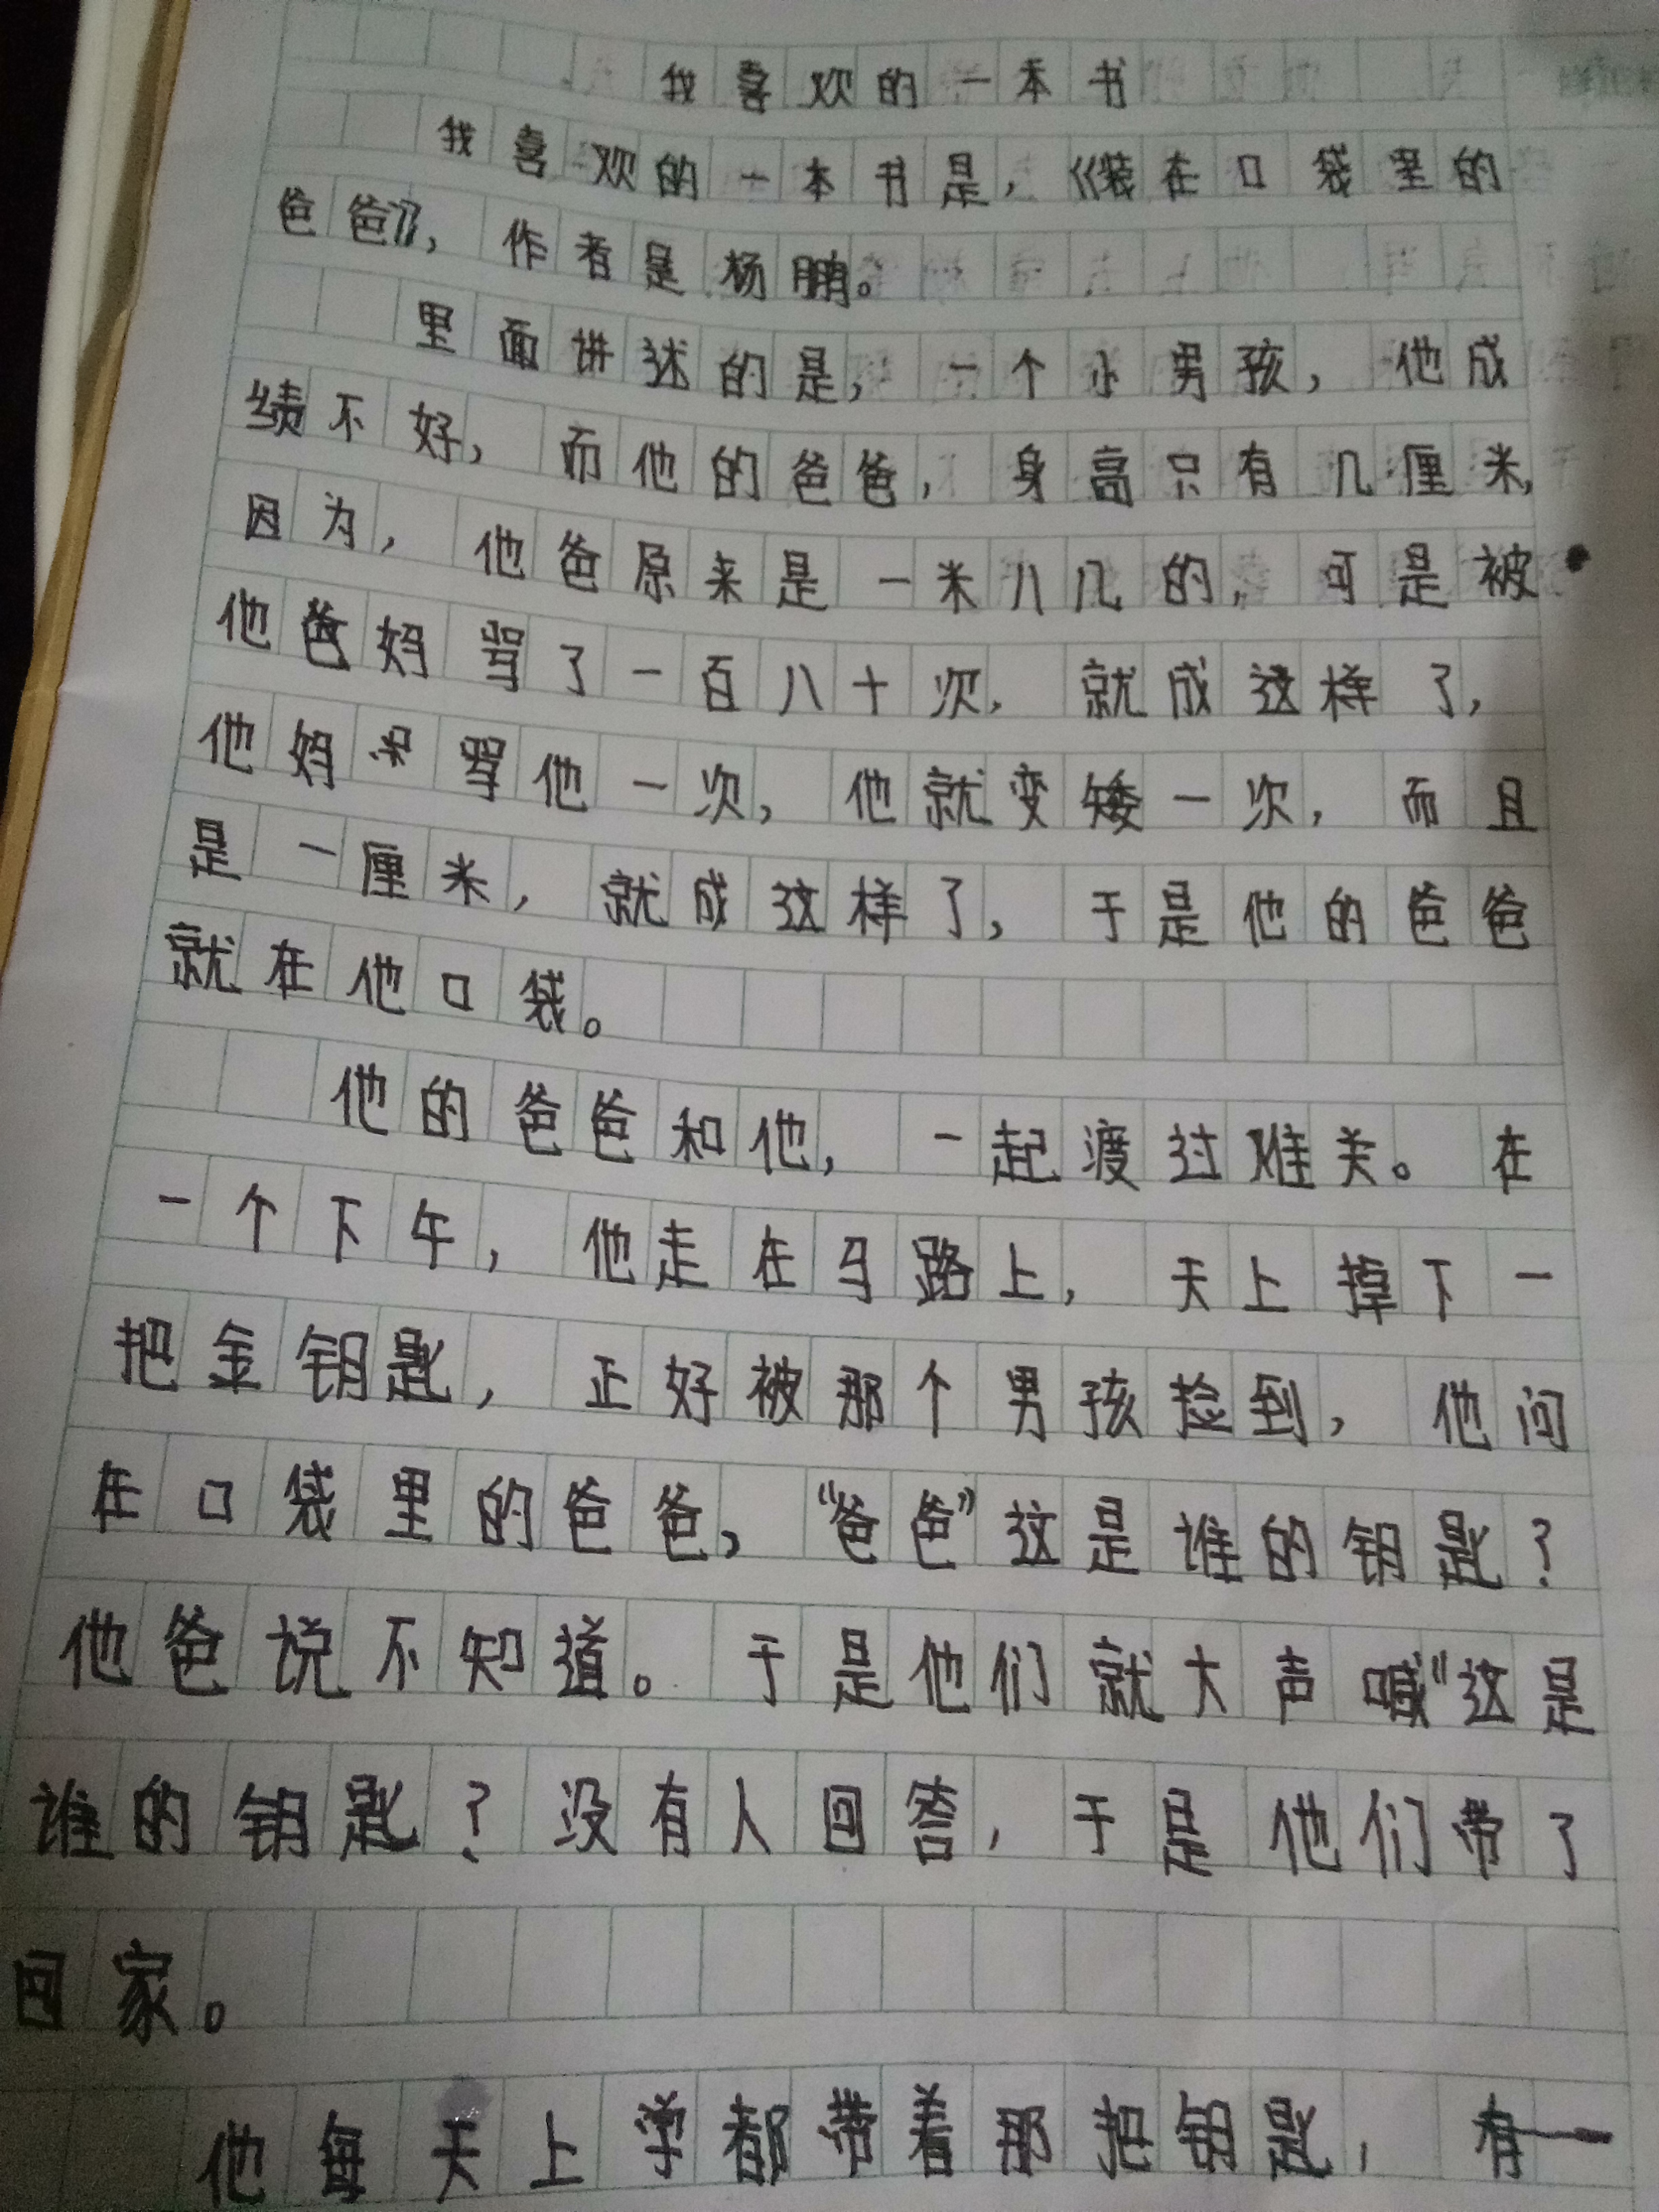 我喜欢的一本书
我喜欢的一本书是，《装在口袋里的
爸爸》，作者是杨鹏。
里面讲述的是，一个小男孩，他成
绩不好，而他的爸爸，身高只有几厘米，
因为，他爸原来是一米八几的，可是被
他爸妈骂了一百八十次，就成这样了，
他妈骂他一次，他就变矮一次，而且
是一厘米，就成这样了，于是他的爸爸
就在他口袋。
他的爸爸和他，一起渡过难关。在
一个下午，他走在马路上，天上掉下一
把金钥匙，正好被那个男孩捡到，他问
在口袋里的爸爸，“爸爸”这是谁的钥匙？
他爸说不知道。于是他们就大声喊“这是
谁的钥匙？没有人回答，于是他们带了
回家。
他每天上学都带着那把钥匙，有一